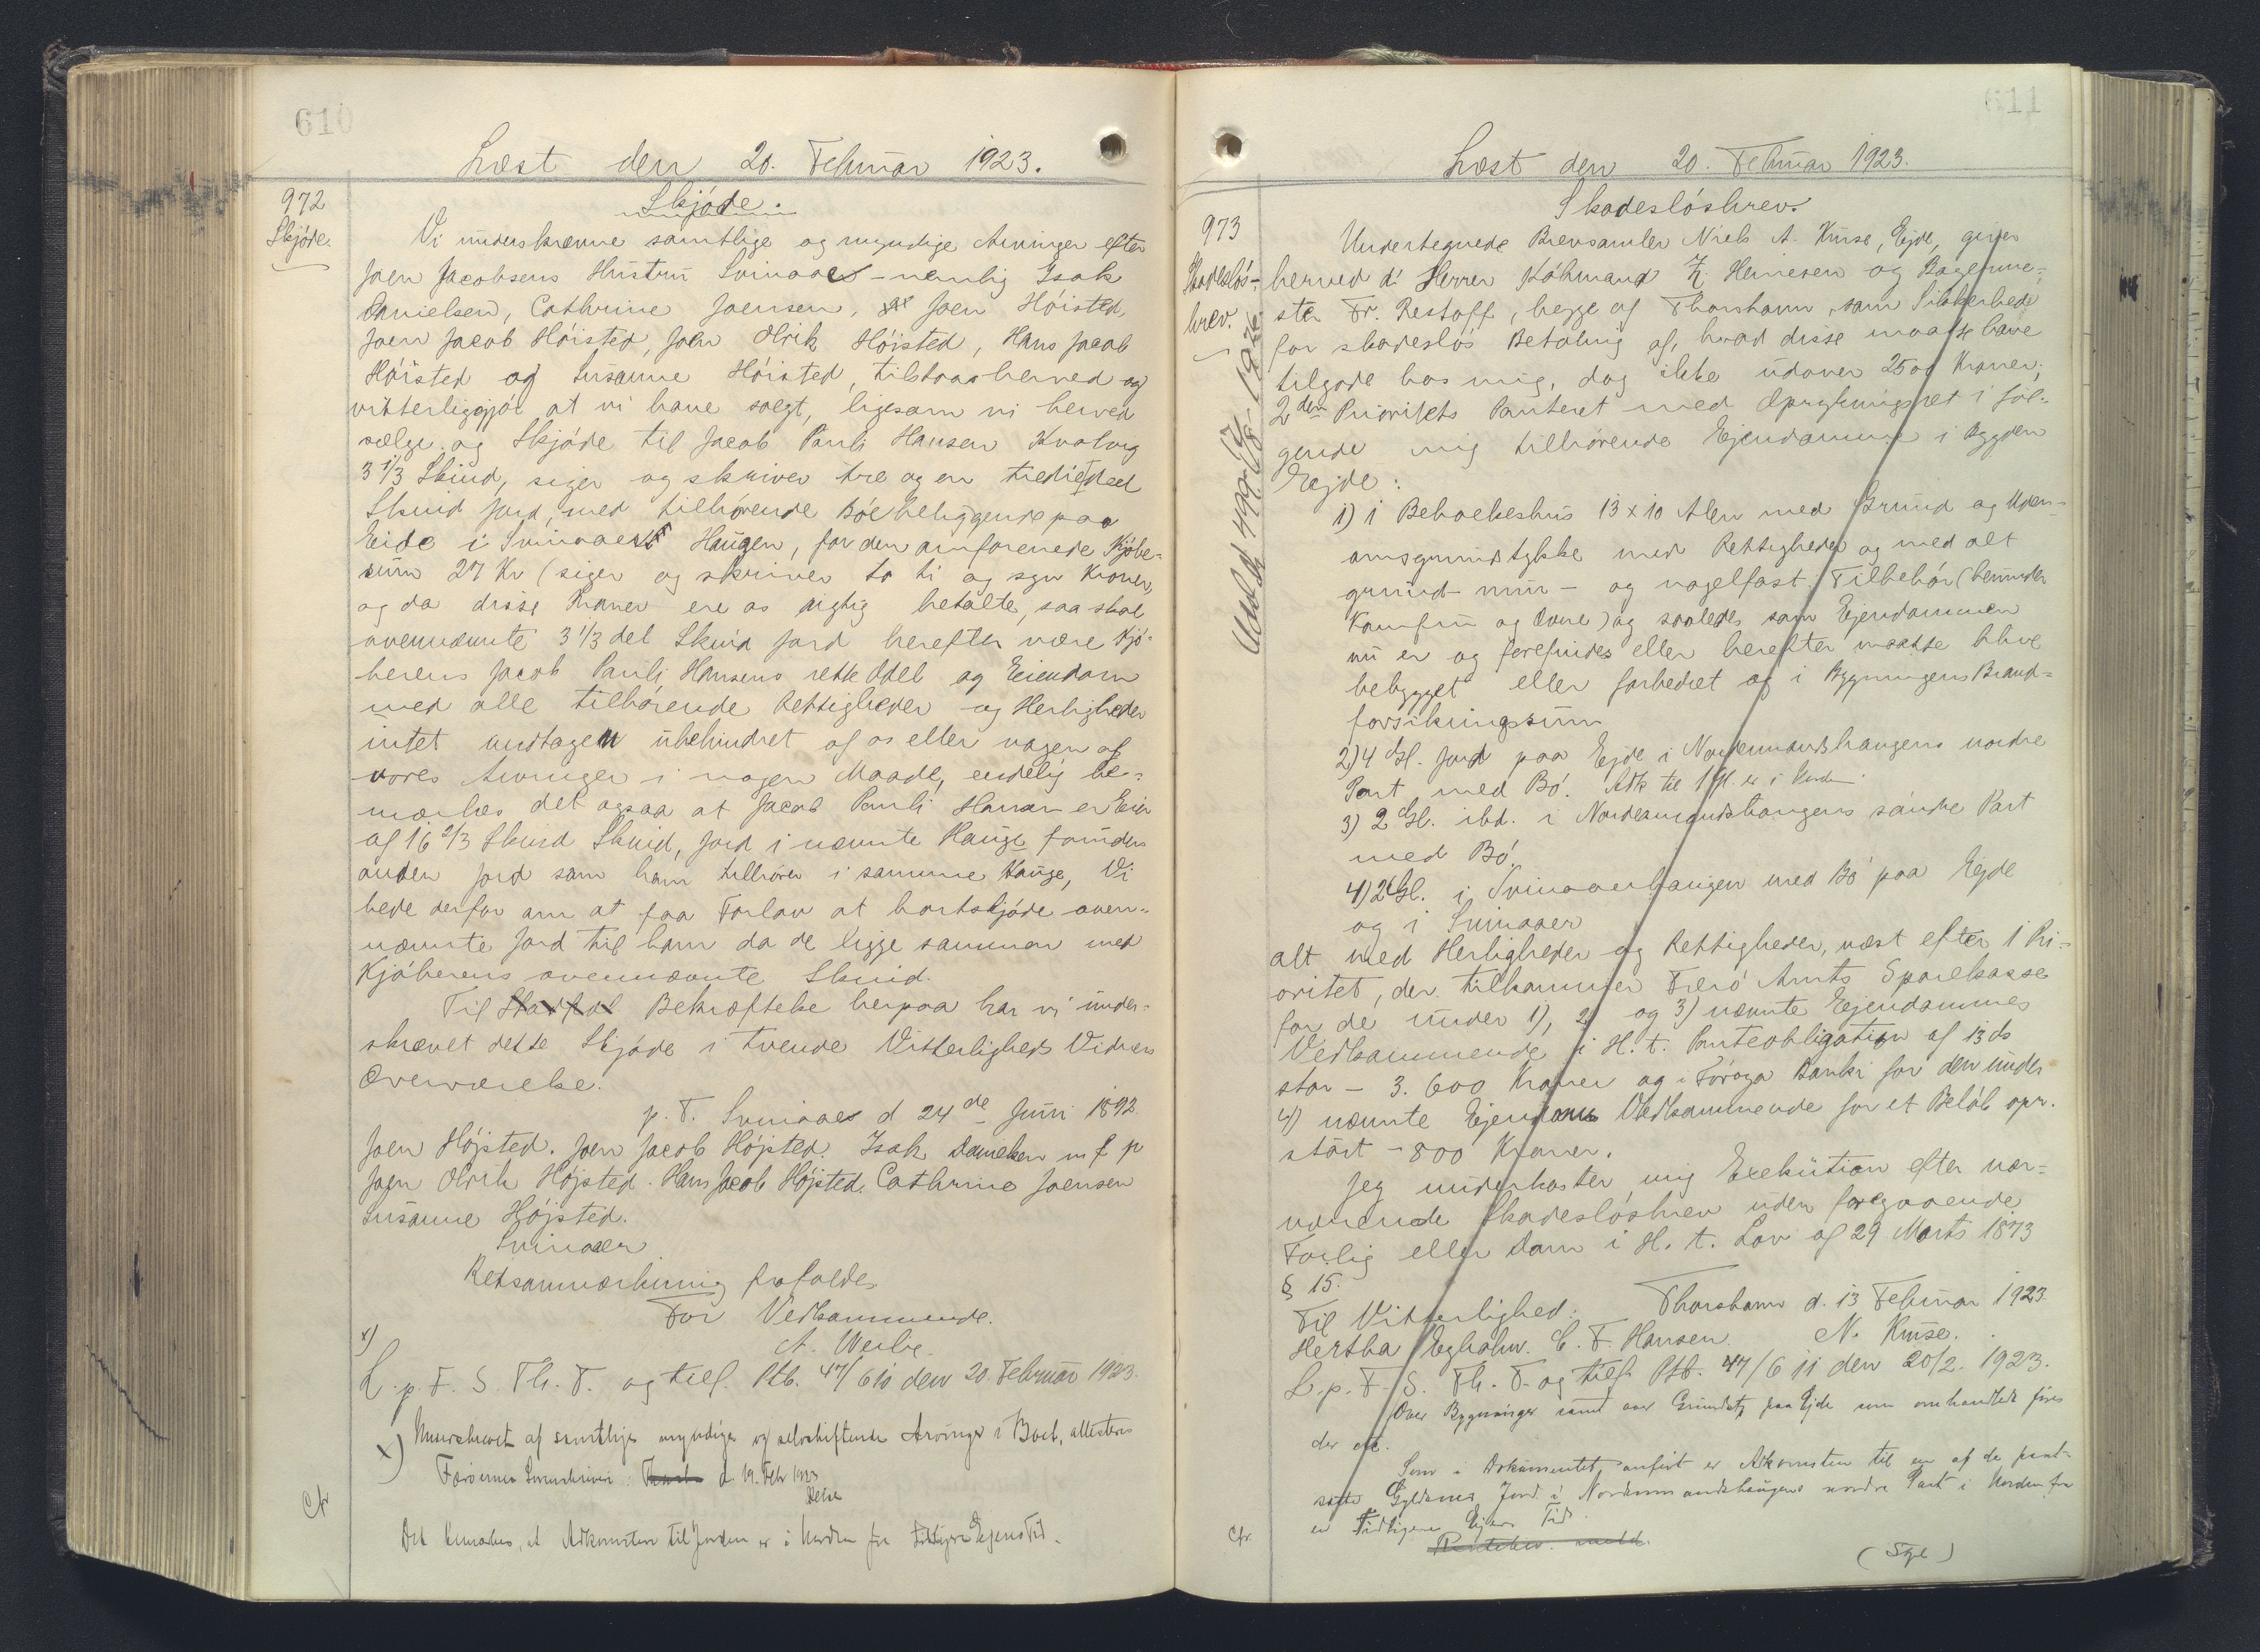 610
Læst den 20. Februar 1923.
972
Skjóde.
Skjóde.
Vi underskrevne samtlige og myndige Arvinger efter
Joen Jacobsens Hustru Svinaaes - nemlig Isak
Danielsen, Cathrine Joensen, Joen Hóisted,
Joen Jacob Hóisted, Joen Olrik Hóisted, Hans Jacob
Hóisted og Susanne Hóisted, tilstaar herved og
vitterliggjór at vi have solgt, ligesom vi herved
sælge og Skjóde til Jacob Pauli Hansen Kvalvig
3 1/3 Skind, siger og skriver tre og en trediedeel
Skind Jord, med tilhórende Bóe beliggende paa
Eide i Svinaaer Haugen, for den omforenede Kjóbe-
sum 27 Kr (siger og skriver to ti og syv Kroner,
og da disse Kroner ere os rigtig betalte, saa skal
ovennævnte 3 1/3 del Skind Jord herefter være Kjó-
berens Jacob Pauli Hansens rette Odel og Eiendom
med alle tilhórende Rettigheder og Herligheder
intet undtagen ubehindret af os eller nogen af
vores Arvinger i nogen Maade, endelig be-
mærkes det ogsaa at Jacob Pauli Hansen er Eier
af 16 2/3 Skind Skind, Jord i nævnte Hauge foruden
anden Jord som ham tilhórer i samme Hauge, Vi
bede derfor om at faa Forlov at bortskjóde oven-
nævnte Jord til ham da de ligge sammen med
Kjóberens ovennævnte Skind.
Til Bekræftelse herpaa har vi under-
skrevet dette Skjóde i tvende Vitterligheds Vidners
Overværelse.
p. T. Svinaaes d 24de Juni 1892.
Joen Hójsted. Joen Jacob Hójsted. Isak Danielsen m f p
Joen Olrik Hójsted. Hans Jacob Hójsted. Cathrine Joensen
Susanne Hójsted.
Svinaaer
Retsanmærkning frafaldes
For Vedkommende.
A. Weihe.
x)
L. p. F. S. Th. T. og tilf. Ptb. 47/610 den 20. Februar 1923.
x) Underskrevet af samtlige myndige og selvskiftende Arvinger i Boet, attesteres
Færóernes Sorenskriveri: d. 19. Febr 1923
Cfr
Det bemærkes, at Adkomsten til Jorden er i Uorden fra tidligere Ejeres Tid.
611
Læst den 20. Februar 1923.
973
Skadeslós-
brev.
Skadeslósbrev.
Undertegnede Brevsamler Niels A. Kruse, Ejde, giver
herved d'Herrer Kóbmand Z. Heinesen og Bagerme-
ster Fr. Restorff, begge af Thorshavn, som Sikkerhed
for skadeslós Betaling af, hvad disse maatte have
tilgode hos mig, dog ikke udover 2500 Kroner,
2den Prioritets Panteret med Oprykningsret i fól-
gende mig tilhórende Ejendomme i Bygden
Ejde:
1) i Beboelseshus 13 x 10 Alen med Grund og Uden-
omsgrundstykke med Rettigheder og med alt
grund- mur- og nagelfast Tilbehór (herunder
Komfur og Ovne) og saaledes som Ejendommen
nu er og forefindes eller herefter maatte blive
bebygget eller forbedret og i Bygningens Brand-
forsikringssum
2) 4 Gl. Jord paa Ejde i Nordenmandshaugens nordre
Part med Bó. Adk til 1 Gl. er i Uorden.
3) 2 Gl. ibd. i Nordenmandshaugens sóndre Part
med Bó.
4) 2 Gl. i Svinaaerhaugen med Bó paa Ejde
og i Svinaaer
alt med Herligheder og Rettigheder, næst efter 1 Pri-
oritet, der tilkommer Færó Amts Sparekasse
for de under 1), 2) og 3) nævnte Ejendommes
Vedkommende i H. t. Panteobligation af 13 ds
stor - 3.600 Kroner og i Fóroya Banki for den under
4) nævnte Ejendoms Vedkommende for et Belób opr.
stórt - 800 Kroner.
Jeg underkaster mig Exekution efter nær-
værende Skadeslósbrev uden foregaaende
Forlig eller Dom i H. t. Lov af 29 Marts 1873
§ 15.
Thorshavn d. 13 Februar 1923.
Til Vitterlighed:
Hertha Egholm. C. F. Hansen. N. Kruse.
L. p. F. S. Th. T. og tilf. Ptb. 47/611 den 20/2. 1923.
Over Bygninger samt over Grundst. paa Ejde som omhandlet
der
Som i Dokumentet anfórt er Adkomsten til en af de pant-
satte Gyldener Jord i Nordenmandshaugens nordre Part i Uorden fra
en tidligere Ejers Tid.
Cfr.